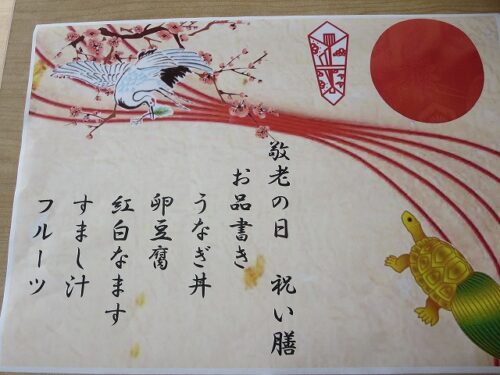 敬老の日　祝い膳
お品書き
うなぎ丼
卵豆腐
紅白なます
すまし汁
フルーツ